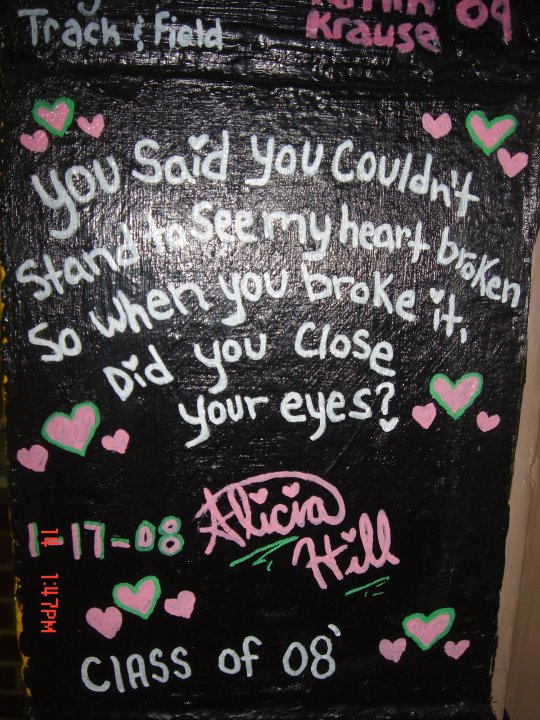 Track & Field
Krause 09
You Said You Couldn't
Stand to See my heart broken
So when you broke it,
Did you Close
your eyes?
1-17-08
Alicia
Hill
14 1:47PM
Class of 08'